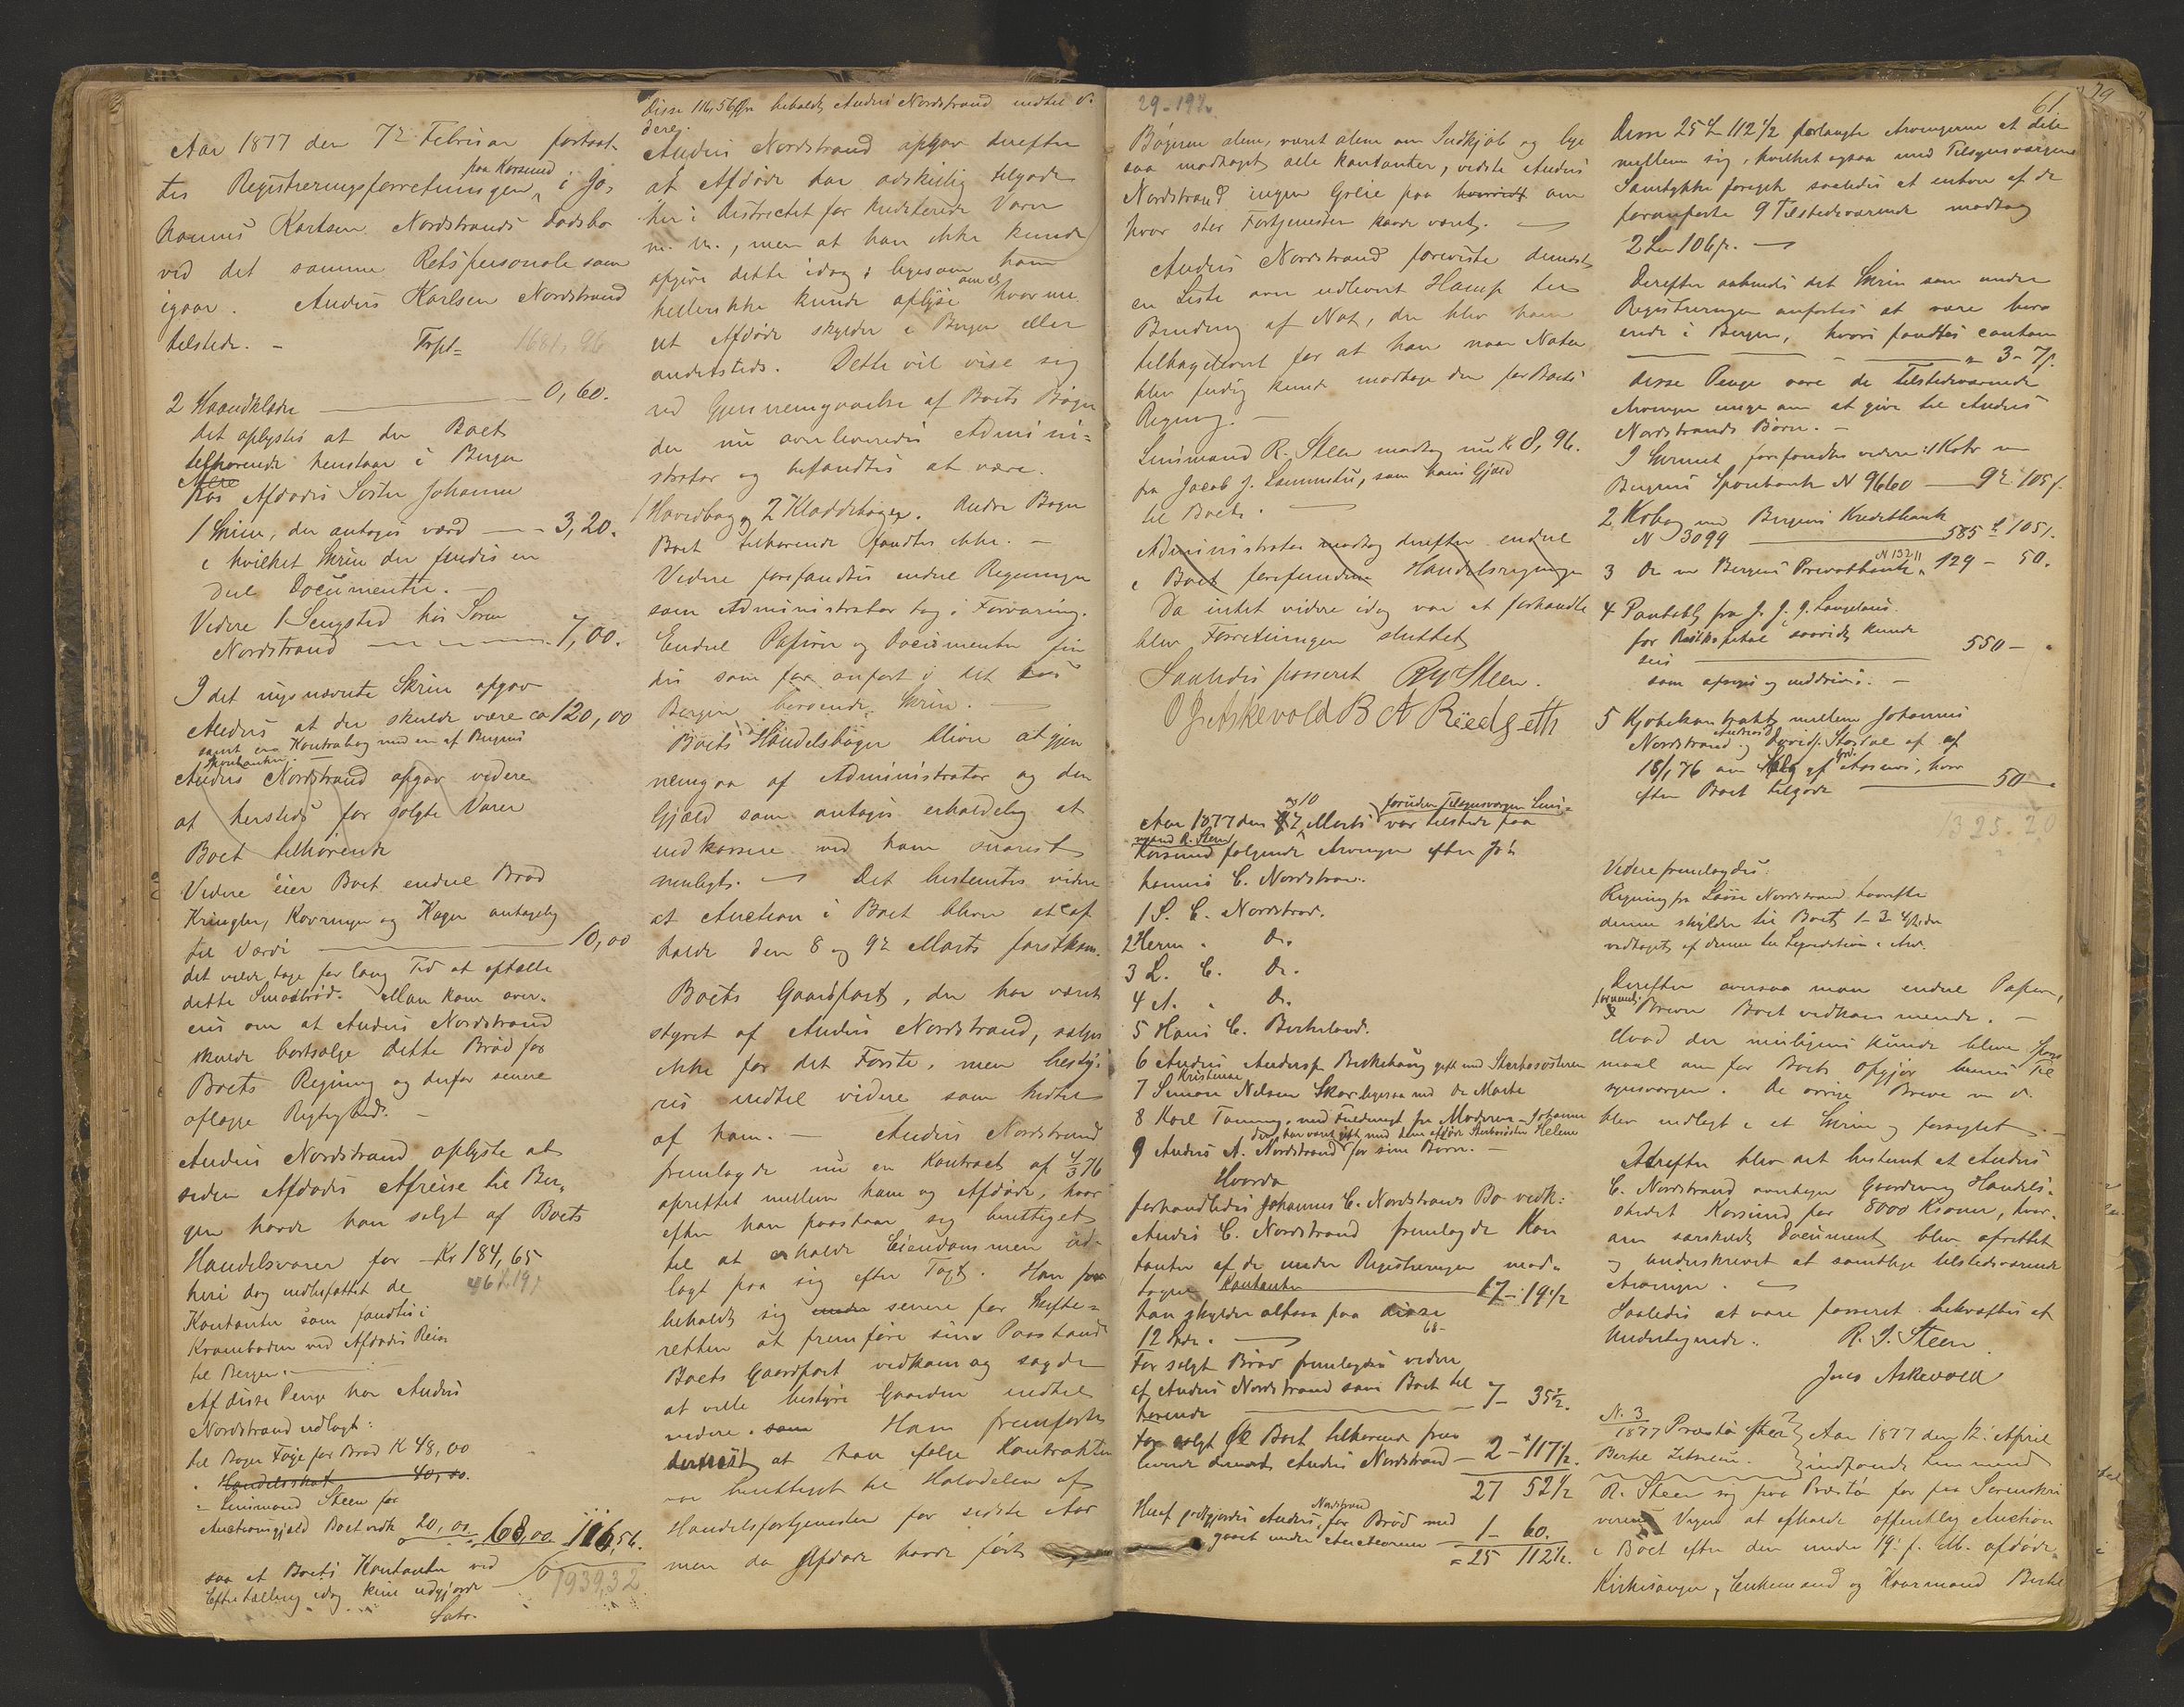 Aar 1877 den 7de Februar fortsat-
tes Registreringsforretningen paa Korsund i Jo-
hannes Karlsen Nordstrands Dødsbo
ved det samme Retspersonale som
igaar. Anders Karlsen Nordstrand
tilstede. - Trspt= 1681,96
2 Haandklæder 0,60.
Det oplystes at der Boet
tilhørende henstaar i Bergen
hos Afdødes Søster Johanne
1 Skrin, der antages værd 3,20.
i hvilket Skrin der findes en
Deel Documenter.
Videre 1 Sengsted hos Søren
Nordstrand 7,00.
I det nysnævnte Skrin opgav
Anders at der skulde være ca 120,00
samt en Kontrabog med en af Bergens
Sparebanker.
Anders Nordstrand opgav videre
at hersteds for solgte Varer
Boet tilhørende
Videre eier Boet endnu Brød
Kringler, Kavringer og Kager antagelig
til Værdi 10,00
det vilde tage for lang Tid at optælle
dette Smaabrød. Man kom over-
ens om at Anders Nordstrand
skulde bortsælge dette Brød for
Boets Regning og derfor senere
aflægge Rigtighed. -
Anders Nordstrand oplyste at
siden Afdødes Afreise til Ber-
gen havde han solgt af Boets
Handelsvarer for Kr 184,65
heri dog indbefattet de
Kontanter som fandtes i
Kramboden ved Afdødes Reise
til Bergen.
Af disse Penge har Anders
Nordstrand udlagt:
til Bager Føge for Brød K 48,00
" Handelsskat 40,00.
" Lensmand Steen for
Auctionsgjæld Boet vedk 20,00 68,00 116,56.
saa at Boets Kontanter ved
Eftertælling idag kun udgjorde 1939,32
Latr.
Disse 116,56 Øre beholdt Anders Nordstrand indtil v-
dere.
Anders Nordstrand opgav derefter
at Afdøde har adskillig tilgode
her i Districtet for krediterede Varer
m. m., men at han ikke kunde
opgive dette idag; ligesom han
hellerikke kunde oplyse om og hvor me-
get Afdøde skylder i Bergen eller
andetsteds. Dette vil vise sig
ved Gjennemgaaelse af Boets Bøger
der nu overleveredes Admini=
strator og befandtes at være.
1 Hovedbog og 2 Kladdebøger. Andre Bøger
Boet tilhørende fandtes ikke. -
Videre forefandtes endel Regninger
som Administrator tog i Forvaring.
Endel Papirer og Documenter fin-
des som før anført i det hos
Bergen beroende Skrin.
Boets Handelsbøger bliver at gjen
nemgaa af Administrator og den
Gjæld som antages erholdelig at
indkassere ved ham snarest
muligt. Det bestemtes videre
at Auction i Boet bliver at af
holde den 8 og 9de Marts førstkom.
Boets Gaardpart, der har været
styret af Anders Nordstrand, sælges
ikke for det Første, men besty-
res indtil videre som hidtil
af ham. - Anders Nordstrand
fremlagde nu en Kontract af 4/3 76
oprettet mellem ham og Afdøde, hvor
efter han paastaar sig berettiget
til at erholde Eiendommen ud-
lagt paa sig efter Taxt. Han for
beholdt sig senere for Skifte=
retten at fremføre sine Paastande
Boets Gaardpart vedkom og sagde
at ville bestyre Gaarden indtil
videre. som Han fremførte
dernæst at han ifølge Kontrakten
var berettiget til Halvdelen af
Handelsfortjenesten for sidste Aar
men da Afdøde havde ført
29 - 19 1/2
Bøgerne alene, været alene om Indkjøb og lige
saa modtaget alle Kontanter, vidste Anders
Nordstrand ingen Grele paa hvorvidt om
hvor stor Fortjenesten havde været.
Anders Nordstrand foreviste dernæst
en Liste over udleveret Hamp til
Binding af Not, der blev ham
tilbageleveret for at han naar Noten
blev færdig kunde modtage den for Boets
Regning. -
Lensmand R. Steen modtog nu K 8,96.
fra Jacob J. Lammetu, som hans Gjæld
til Boet.
Administrator modtog derefter endel
i Boet forefundne Handelsregninger
Da intet videre idag var at forhandle
blev Forretningen sluttet
Saaledes passeret RJ Steen.
O J Askevold B A Rüedgeth
Aar 1877 den 9de og 10 Marts var tilstede foruden Tilsynsværgen Lens=
mand R. Steen paa
Korsund følgende Arvinger efter Jo-
hannes C. Nordstran.
1 S. C. Nordstrand.
2 Herm. " Do.
3 L. C. Do.
4 A. " Do.
5 Hans C. Birkeland.
6 Anders Andersen Birkehaug gift med Sterbosøsteren
Kristense
7 Simon Nilsen Skar ligesaa med Do Marte
8 Karl Tonning, med Fuldmagt fra Moderen - Johanne
9 Anders A. Nordstrand der har vært gift med den afdøde Sterbosøster Helene for sine Børn. -
Hvorda
forhandledes Johannes C. Nordstrands Bo vedk:
Anders C. Nordstrand fremlagde Kon
tanter af de under Registreringen mod-
tagne Kontanter 17 - 19 1/2
han skylder altsaa paa disse
12 Spdr. 68-
For solgt Brød fremlagdes videre
af Anders Nordstrand som Boet til
hørende 7 - 35 1/2.
For solgt Boet tilhørende frem
leverede dernæst Anders Nordstrand - 2 - 117 1/2.
27 52 1/2
Heraf godtgjordes Anders Nordstrand for Brød med
gaaet under Auctionen 1 - 60.
= 25 112 1/2.
61.
Disse 25 S 112 1/2 forlangte Arvingerne at dele
mellem sig, hvilket ogsaa med Tilsynsværgens
Samtykke foregik saaledes at enhver af de
foranførte 9 Tilstedeværende modtog
2 Spd 106 s.
Derefter aabnedes det Skrin som under
Registreringen anførtes at være bero
ende i Bergen, hvori fandtes contan
" 3 - 7 s.
Disse Penge vare de tilstedeværende
Arvinger enige om at give til Anders
Nordstrands Børn. -
I Skrinet forefandtes videre: 1 Kobr m
Bergens Sparebank N 9660 92 105 s.
2. Kobog med Bergens Kreditbank
N 3099 585 S 105 s.
3 Do m Bergens Privatbank, N 13211 129 - 50.
4 Pantobl. fra J. J. J. Langeland.
for Restkapital saavidt kunde
sees 550 -
som opsiges og inddrives. -
5 Kjøbekontrakt mellem Johannes
Nordstrand og Andreas Davids. Stordal af
18/1 76 om Salg af Aasnes, hvor
efter Boet tilgode 50
1325.20
Videre fremlagdes:
Regning fra Løvse Nordstrand hvorefter
denne skylder til Boet 1 - 3
vedtaget af denne
Derefter oversaa man endel Papirer,
fornemmel.
& Breve Boet vedkommende. -
Hvad der muligens kunde blive Spørs
maal om for Boets Opgjør beroes Til
synsværgen. De øvrige Breve m v.
blev indlagt i et Skrin og forseglet.
Derefter blev det bestemt at Anders
C. Nordstrand overtager Gaarden og Handels-
stedet Korsund for 8000 Kroner, hvor-
om særskildt Document blev oprettet
og underskrevet af samtlige tilstedeværende
Arvinger.
Saaledes at være passeret bekræftes af
Undertegnede. R. J. Steen
Jens Askevold
N. 3
1877 Præstø efter } Aar 1877 den 12. April
Berthe } indfandt Lensmand
R. Steen sig paa Præstøn for paa Sorenskri
verens Vegne at afholde offentlig Auction
i Boet efter den under 19. f. M. afdøde
Kirkesanger, Enkemand og Kaarmand Berthel